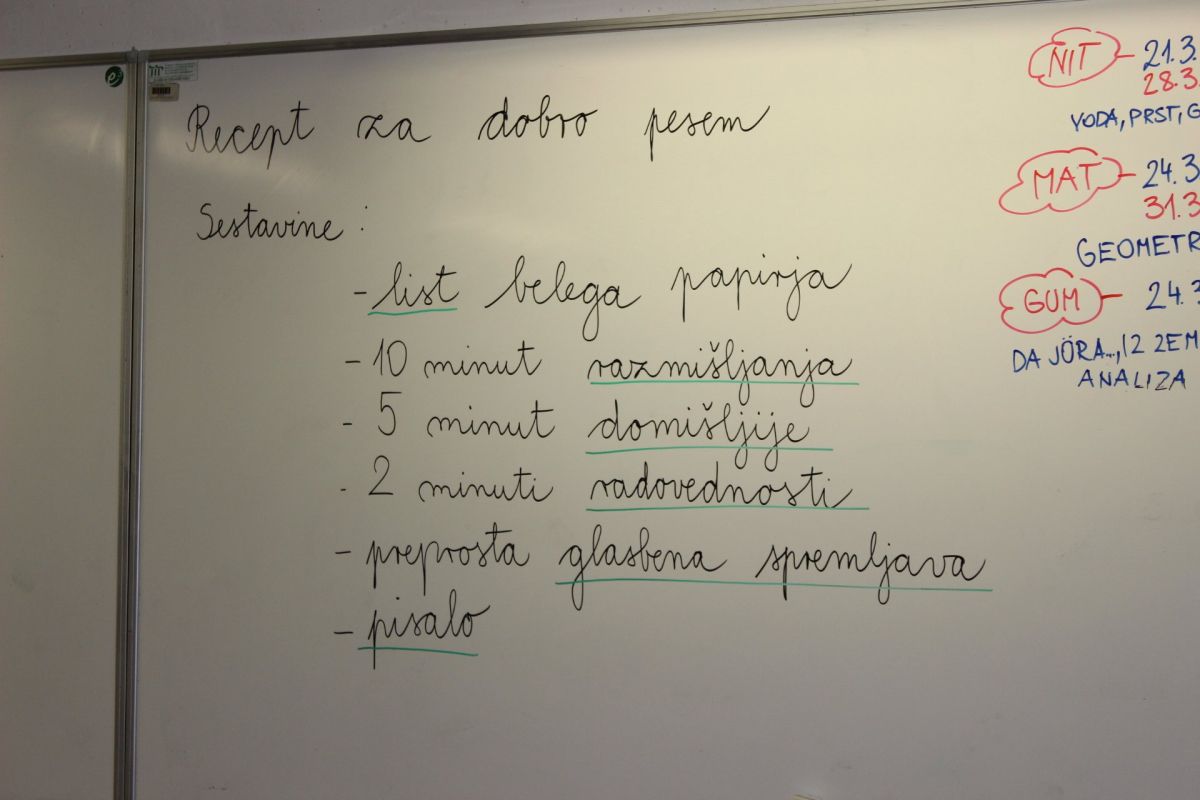 Recept za dobro pesem
Sestavine :
- list belega papirja
- 10 minut razmišljanja
- 5 minut domišljije
- 2 minuti radovednosti
- preprosta glasbena spremljava
- pisalo
NIT - 21.3.
28.3.
VODA, PRST, G
MAT - 24.3
31.3
GEOMETR
GUM - 24.3
DA JÖRA..., 12 ZEM
ANALIZA